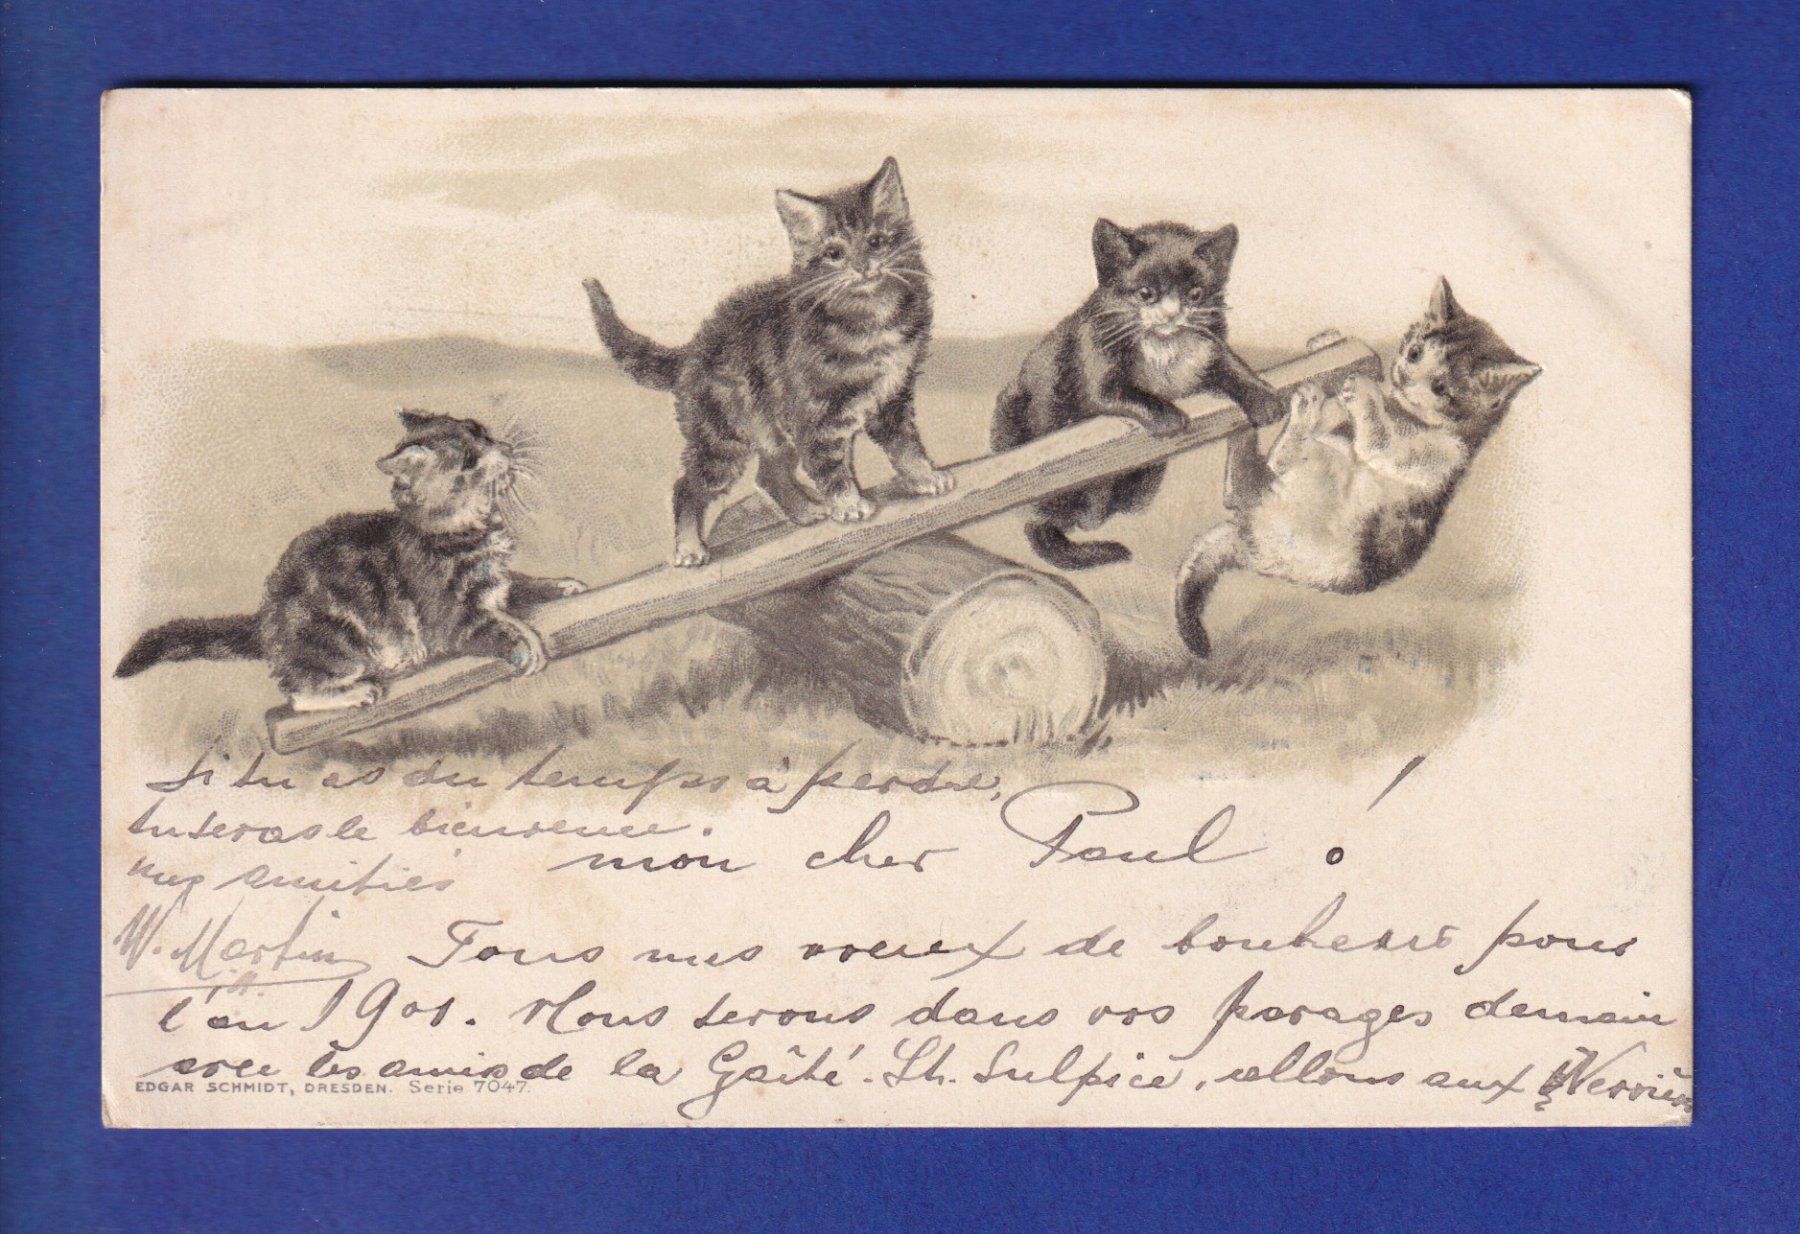 mon cher Paul !
Tous mes voeux de bonheurs pour
l'an 1901. Nous serons dans vos parages demain
avec les amis de la Gaîté. St. Sulpice, allons aux Verrières
Si tu as du temps à perdre,
tu seras le bienvenu.
mes amitiés
W. Martin
EDGAR SCHMIDT, DRESDEN. Serie 7047.